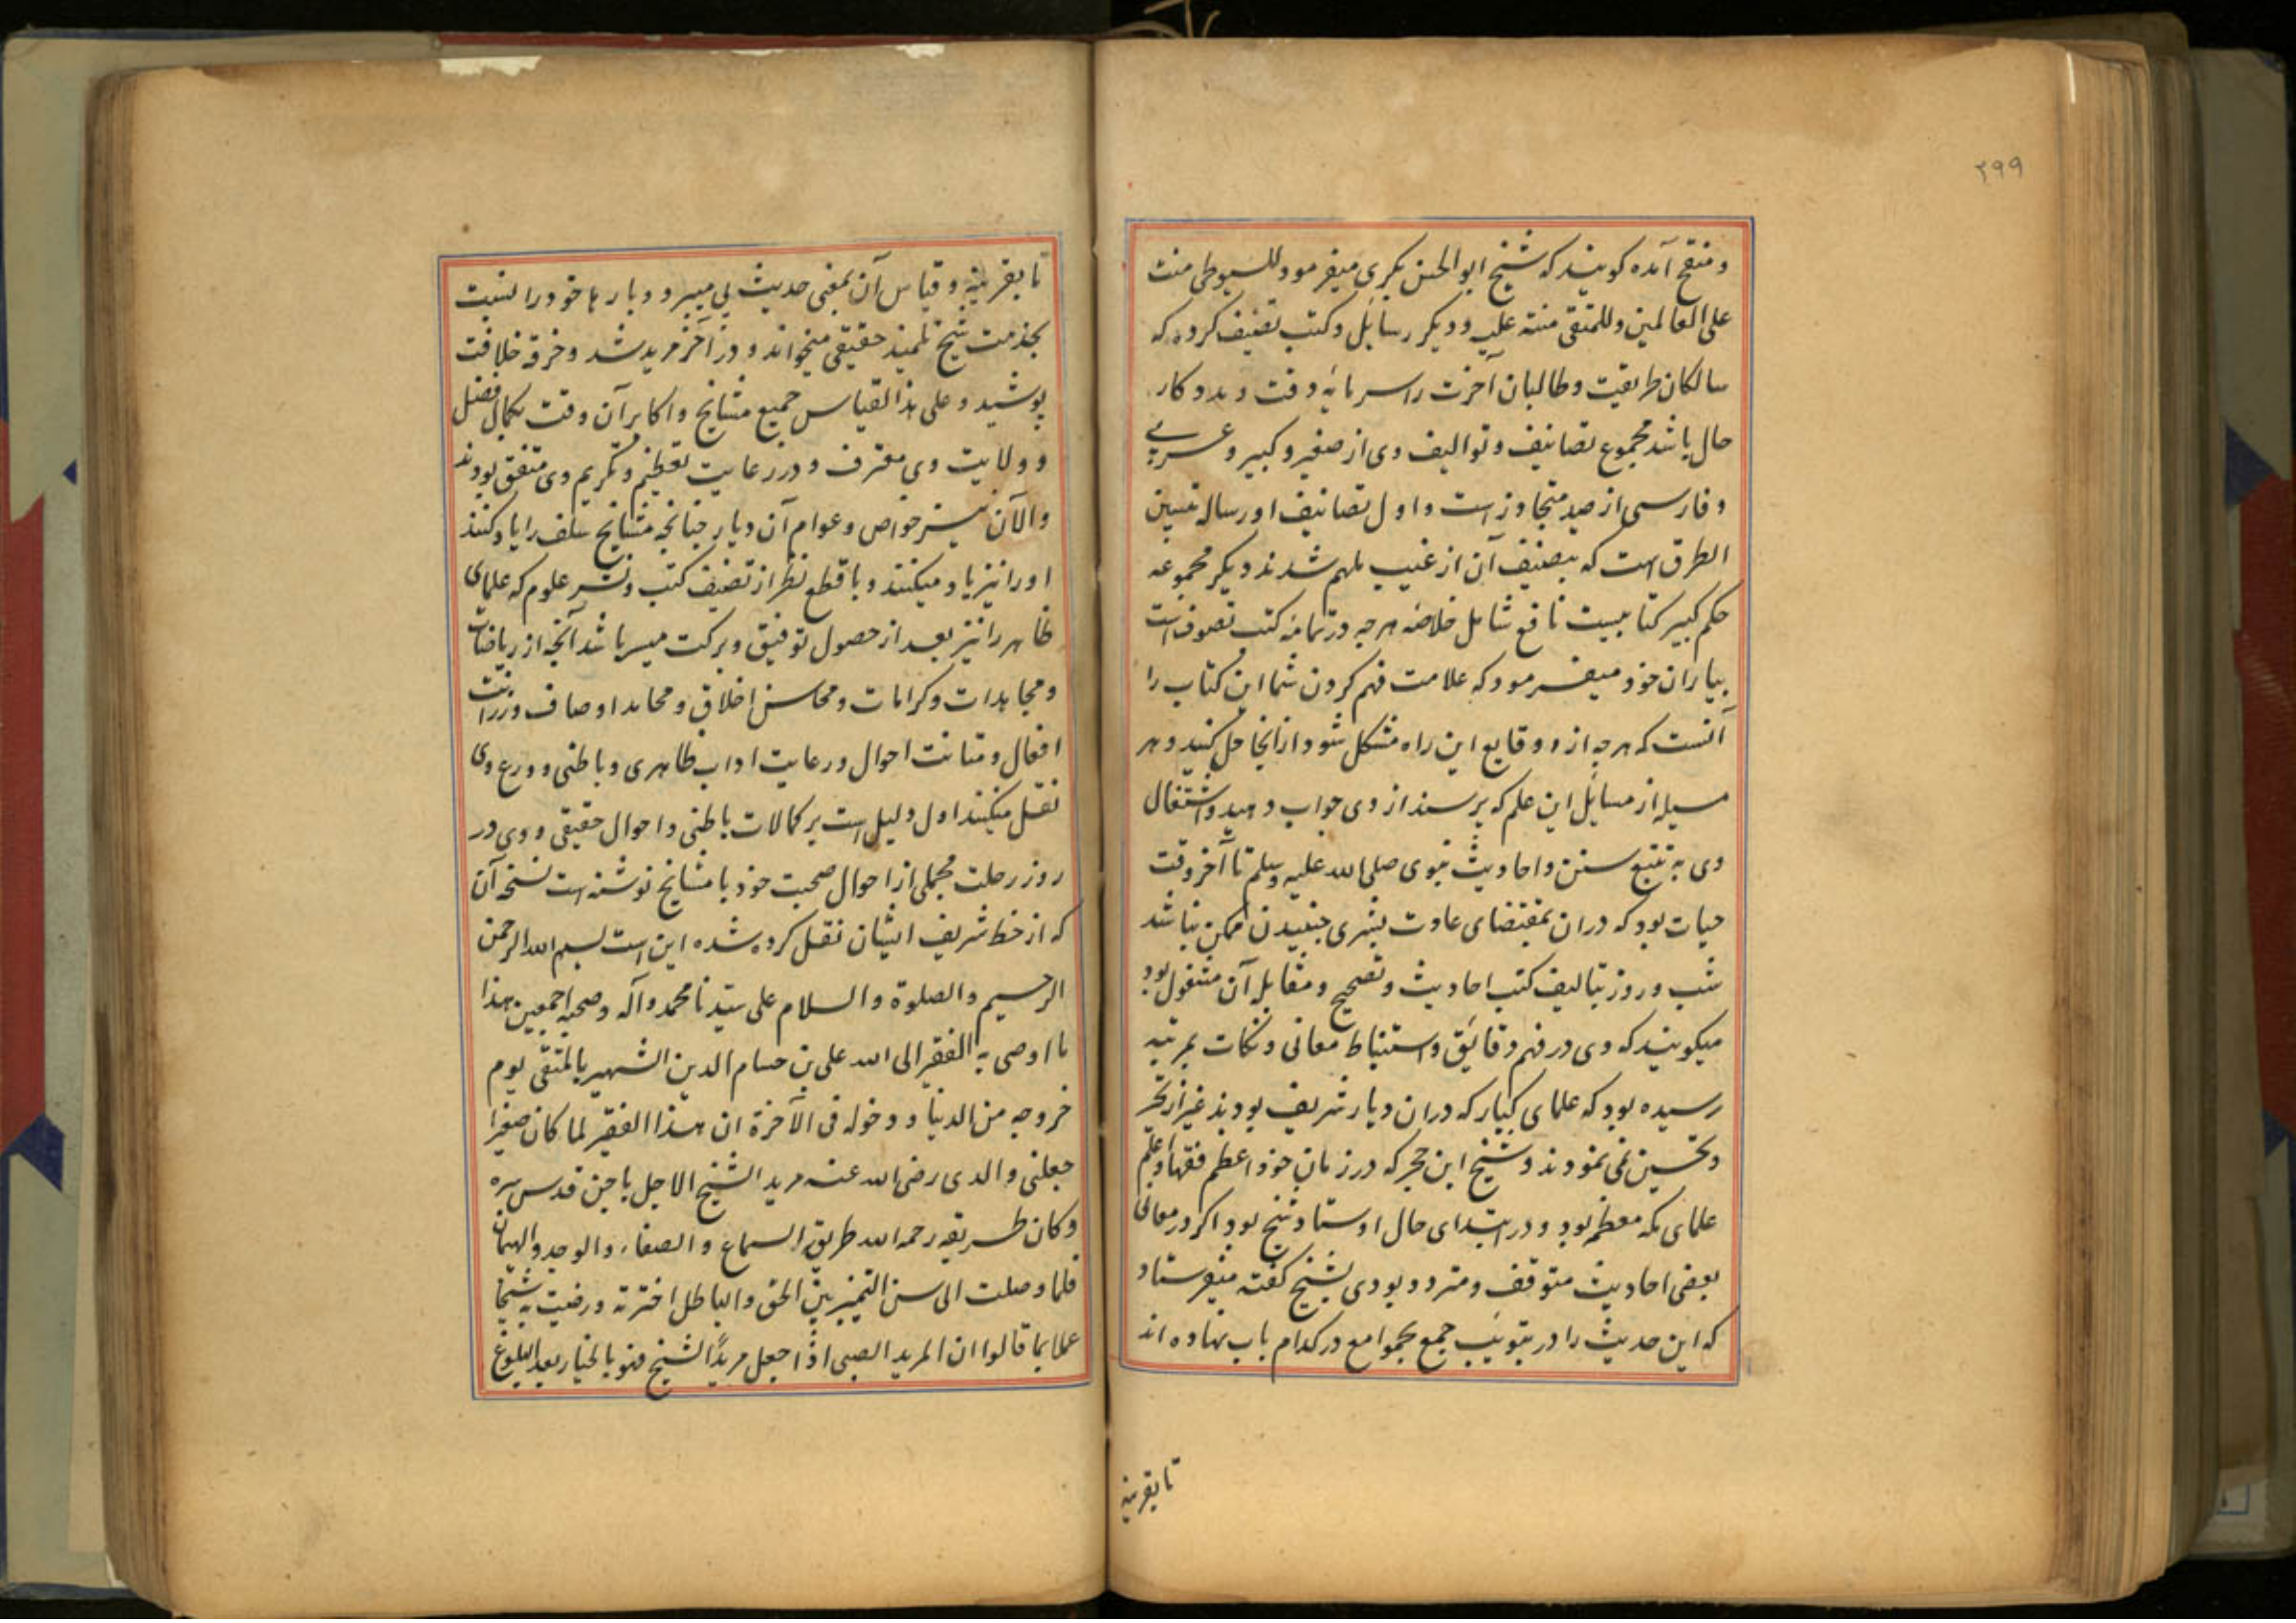 ۲۹۹
و منقح آمده کویند که شیخ ابو الحسن بکری میفرمود للسیوطی منت
علی العالمین و للمتقی منته علیه و دیکر رسایل و کتب تصنیف کرده که
سالکان طریقت و طالبان آخرت را سرمایه وقت و مددکار
حال باشد مجموع تصانیف و توالیف وی از صغیر و کبیر و عربی
و فارسی از صد متجاوز است و اول تصانیف او رساله تبیین
الطرق است که بتصنیف آن از غیب ملهم شدند دیکر مجموعه
حکم کبیر کتابیست نافع شامل خلاصه هرچه در تمامه کتب تصوف است
بیاران خود میفرمود که علامت فهم کردن شما این کتاب را
آنست که هرچه از وقایع این راه مشکل شود از انجا حل کنید و هر
مسیله از مسایل این علم که پرسند از وی جواب دهید و اشتغال
وی به تتبع سنن و احادیث نبوی صلی الله علیه وسلم تا آخر وقت
حیات بود که دران بمقتضای عادت بشری جنبیدن ممکن نباشد
شب و روز بتالیف کتب احادیث و تصحیح و مقابله آن مشغول بود
میکویند که وی در فهم دقائق و استنباط معانی و نکات بمرتبه
رسیده بود که علمای کبار که دران دیار شریف بودند غیر از تحیر
و تحسین نمی نمودند و شیخ ابن حجر که در زمان خود اعظم فقها و اعلم
علمای مکه معظمه بود و در ابتدای حال اوستاد شیخ بود اکر در معانی
بعضی احادیث متوقف و متردد بودی بشیخ کفته میفرستاد
که این حدیث را در تبویب جمع الجوامع در کدام باب نهاده اند
تا بقرینه
تا بقرینه و قیاس آن بمعنی حدیث پی میبرد و بارها خود را نسبت
بخدمت شیخ تلمیذ حقیقی میخواند و در آخر مرید شد و خرقه خلافت
پوشید و علی هذا القیاس جمیع مشایخ و اکابر آن وقت بکمال فضل
و ولایت وی معترف و در رعایت تعظیم و تکریم وی متفق بودند
و الآن نیز خواص و عوام آن دیار چنانچه مشایخ سلف را یاد کنند
او را نیز یاد میکنند و با قطع نظر از تصنیف کتب و نشر علوم که علمای
ظاهر را نیز بعد از حصول توفیق و برکت میسر باشد آنچه از ریاضات
و مجاهدات و کرامات و محاسن اخلاق و محامد اوصاف و رزانت
افعال و متانت احوال و رعایت اداب ظاهری و باطنی و ورع وی
نقل میکنند اول دلیل است بر کمالات باطنی و احوال حقیقی و وی در
روز رحلت مجملی از احوال صحبت خود با مشایخ نوشته است نسخه آن
که از خط شریف ایشان نقل کرده شده این است بسم الله الرحمن
الرحیم والصلوة والسلام علی سیدنا محمد وآله وصحبه اجمعین هذا
ما اوصی به الفقیر الی الله علی بن حسام الدین الشهیر بالمتقی یوم
خروجه من الدنیا و دخوله فی الآخرة ان هذا الفقیر لما کان صغیرا
جعلنی والدی رضی الله عنه مرید الشیخ الاجل باجن قدس سره
وکان طریقه رحمه الله طریق السماع والصفاء والوجد والهیمان
فلما وصلت الی سن التمیز بین الحق والباطل اخترته ورضیت به شیخا
عملا بما قالوا ان المرید الصبی اذا جعل مریدًا لشیخ فهو بالخیار بعد البلوغ